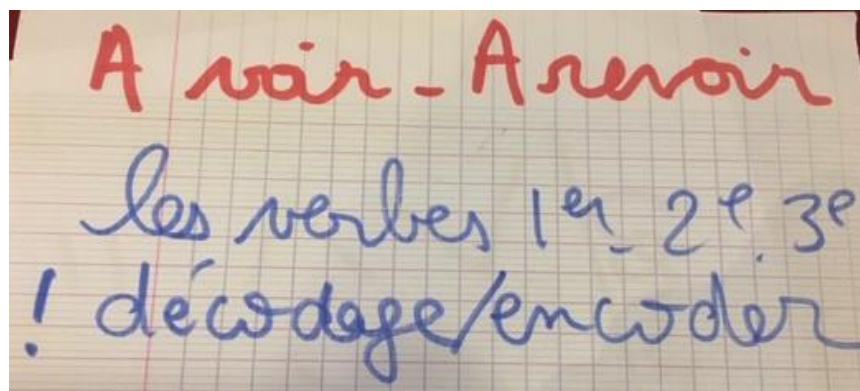 A voir - A revoir
les verbes 1er. 2e. 3e
! décodage/encoder